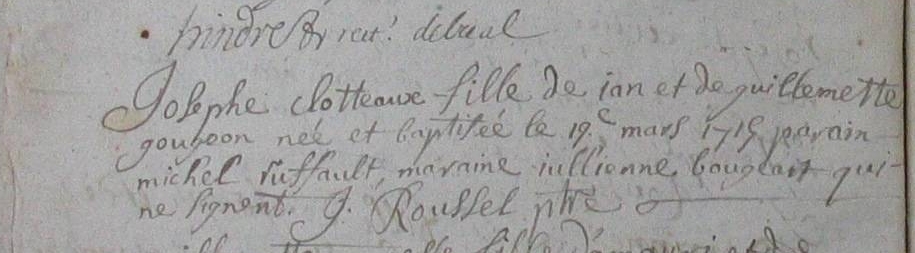 hindre & rect. debreal
Josephe clotteaux fille de ian et de guillemette
gougeon neé et baptiseé le 19.e mars 1715 parain
michel ruffault, maraine iullienne bougeart qui-
ne signent. J. Roussel ptre
fille